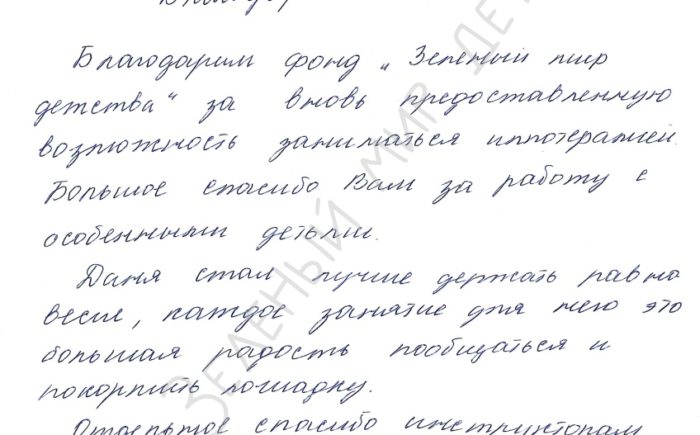 Благодарим фонд „Зеленый мир
детства“ за вновь предоставленную
возможность заниматься иппотерапией.
Большое спасибо Вам за работу с
особенными детьми.
Даня стал лучше держать равно
весие, каждое занятие для него это
большая радость пообщаться и
покормить лошадку.
Отдельное спасибо инструкторам
ЗЕЛЕНЫЙ МИР ДЕТ